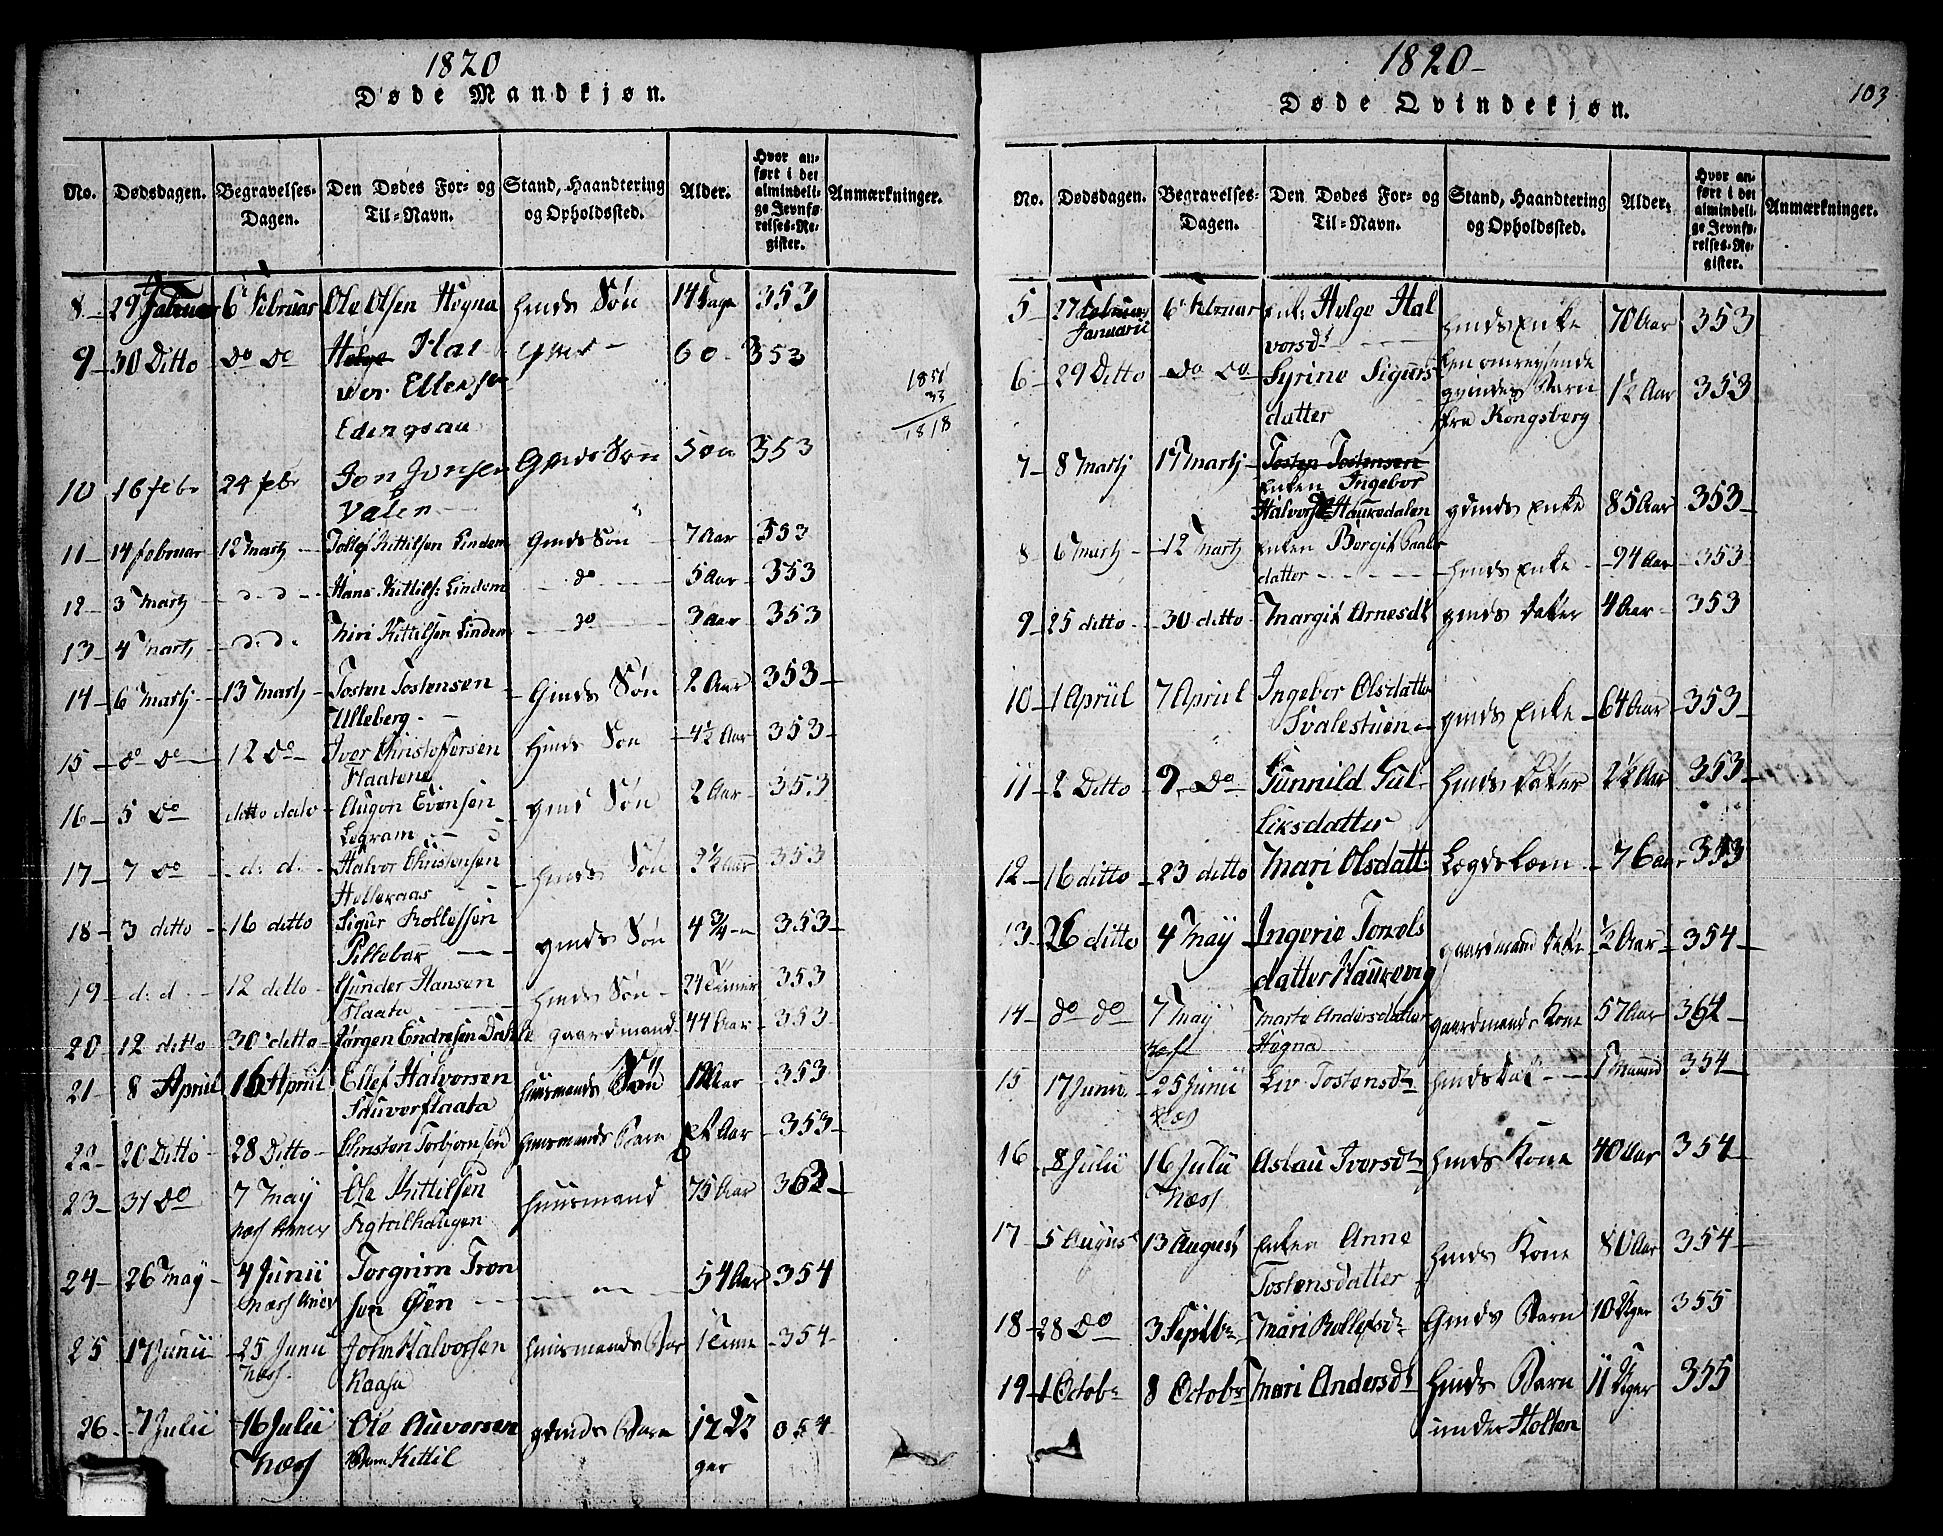 1820
Døde Mandkjøn.
No. Dødsdagen. Begravelses-Dagen. Den Dødes For- og Til-Navn. Stand, Haandtering og Opholdssted. Alder. Hvor anført i det almindelige Jevnførelses-Register. Anmærkninger.
8 29 Januar 6 Februar Ole Olsen Hogna Hmds Søn 14 Dage 353
9 30 Ditto Do Do Helge Hal 60 353
vor Ellensen
1851
33
1818
10 16 febr 24 febr Jon Jonsen Gmds Søn 50 353
Valen
11 14 februar 12 Martz Tollef Kittilsen Lindem Gmds Søn 7 Aar 353
12 3 Martz d. d. Hans Kittils: Lindem do 5 Aar 353
13 4 Martz d. d. Kittilsen Lindem do 3 Aar 353
14 6 Martj 13 Martz Tosten Tostensen Gmds Søn 2 Aar 353
Ulleberg
15 do do 12 Do Iver Christoffersen Hmds Søn 4½ Aar 353
Flaatene
16 5 Do ditto dato Augon Evensen gmds Søn 2 Aar 353
Legram
17 7 Do d. d. Halvor Christensen Hmds Søn Aar 353
Hellekaas
18 3 ditto 16 ditto Sigur Rollefsen gmds Søn 4¾ 353
19 d. d. 12 ditto Gunder Hansen Hmds Søn 24 Timer 353
Flaata
20 12 ditto 30 ditto Jørgen Endresen gaardmand 44 Aar 353
21 8 April 16 April Ellef Halvorsen Huusmands Aar 353
22 20 Ditto 28 Ditto Christen Torbjørnsen Huusmands Barn Aar 353
23 31 Do 7 May Ole Kittilsen Huusmand 75 Aar 362
Næss
24 26 May 4 Junii Torgrim Tron 54 Aar 354
Næss søn Øen
25 17 Junii 25 Junii John Halvorsen Huusmands Bar 1 Time 354
Næss Kaasa
26 7 Julii 16 Julii Ole Auversen gmds Barn 354
Næss Kittil ger
1820
103
Døde Qvindekjøn.
No. Dødsdagen. Begravelses-Dagen. Den Dødes For- og Til-Navn. Stand, Haandtering og Opholdssted. Alder. Hvor anført i det almindelige Jevnførelses-Register. Anmærkninger.
5 27 Januarii 6 Februar Enke Helge Hal Hmds Enke 70 Aar 353
vorsdt
6 29 Ditto Do Do Syrine Sigurs En omreysende 1½ Aar 353
datter qvindes Barn
fra Kongsberg
7 8 Martj 17 Martj Tosten Tostensen
Enken Ingebor
Halvorsdt Haukedalen gmds Enke 85 Aar 353
8 6 Martz 12 Martz Enken Borgit Paals
datter Hmds Enke 94 Aar 353
9 25 ditto 30 ditto Margit Arnesdt gmds Datter 4 Aar 353
10 1 Apriil 7 Apriil Ingebor Olsdatter
Svalestuen gmds Enke 64 Aar 353
11 2 Ditto 9 Do Gunnild Gul Hmds Datter 2½ Aar 353
liksdatter
12 16 ditto 23 ditto Mari Olsdatt: Legdslem 76 aar 353
13 26 ditto 4 May Ingerie Torvols gaardmand ½ Aar 354
datter Haukevig
14 do do 7 May Marte Andersdatter gaardmands Kone 57 Aar 362
Næss Hogna
15 17 Junii 25 Junii Liv Tostensdt Hmds 1 Maaned 354
16 8 Julii 16 Julii Aslau Iversdt Hmds Kone 40 Aar 354
Næss
17 5 August 13 August Enken Anne Hmds Kone 80 Aar 354
Tostensdatter
18 28 Do 3 Septbr Mari Rollefsdt Gmds Barn 10 Uger 355
19 1 Octobr 8 Octobr Mari Andersdt Hmds Barn 11 Uger 355
under Holten